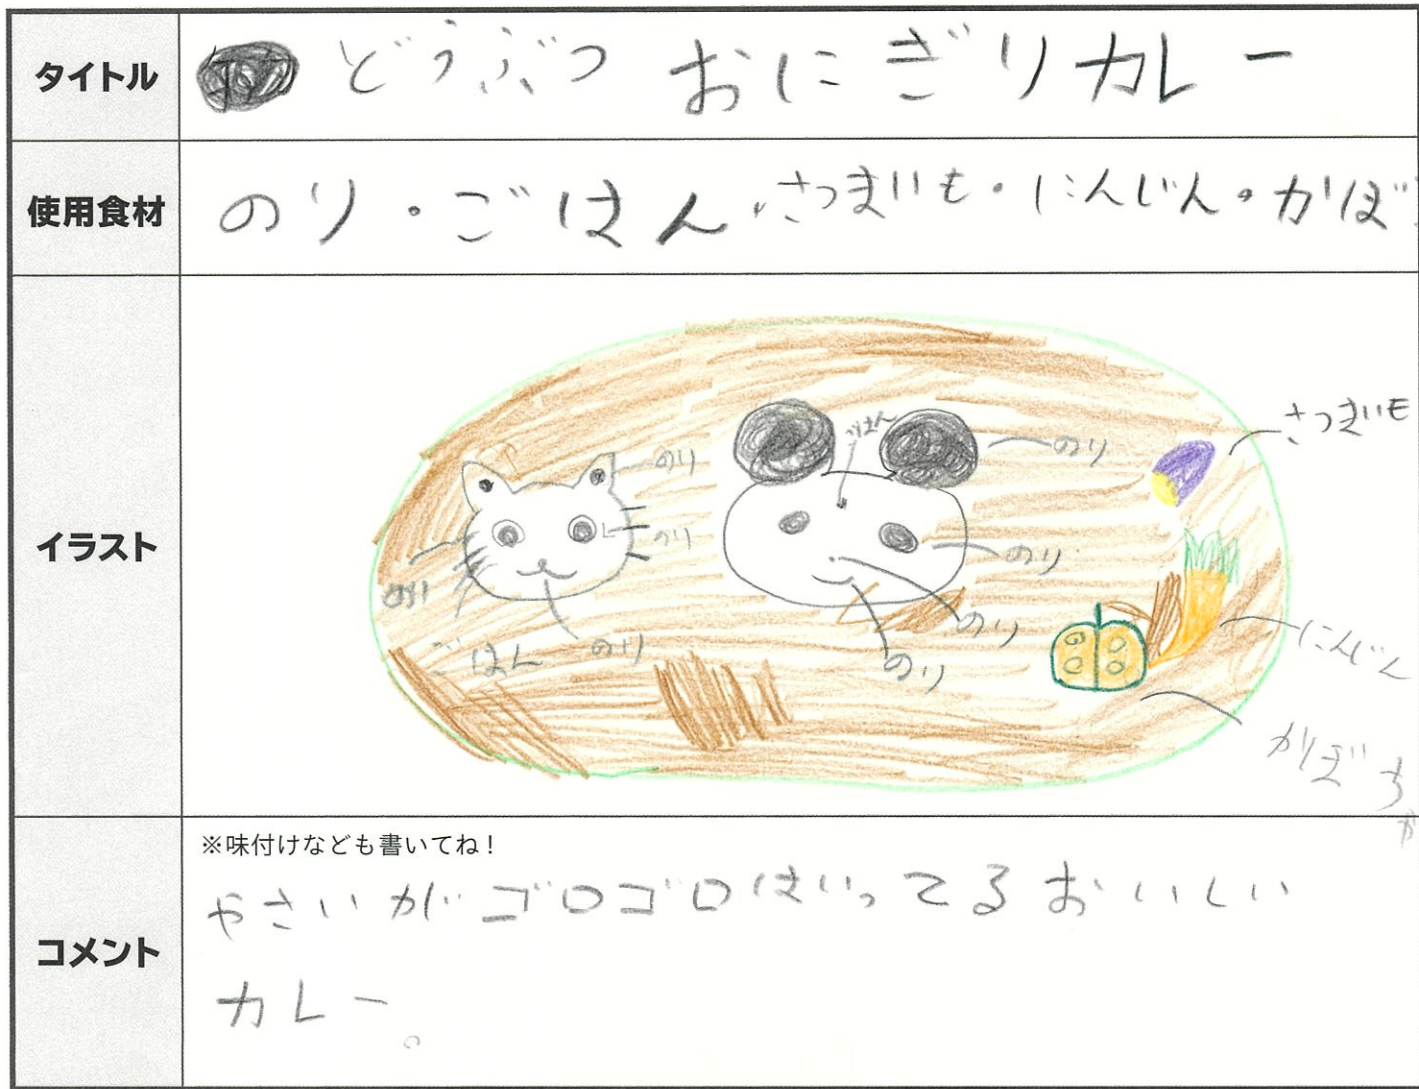 タイトル
どうぶつ おにぎりカレー
使用食材
のり・ごはん・さつまいも・にんじん・かぼ
イラスト
ごはん
のり
のり
さつまいも
のり
のり
のり
のり
ごはん
のり
のり
のり
にんじん
かぼちゃ
コメント
※味付けなども書いてね！
やさいがゴロゴロはいってるおいしい
カレー。